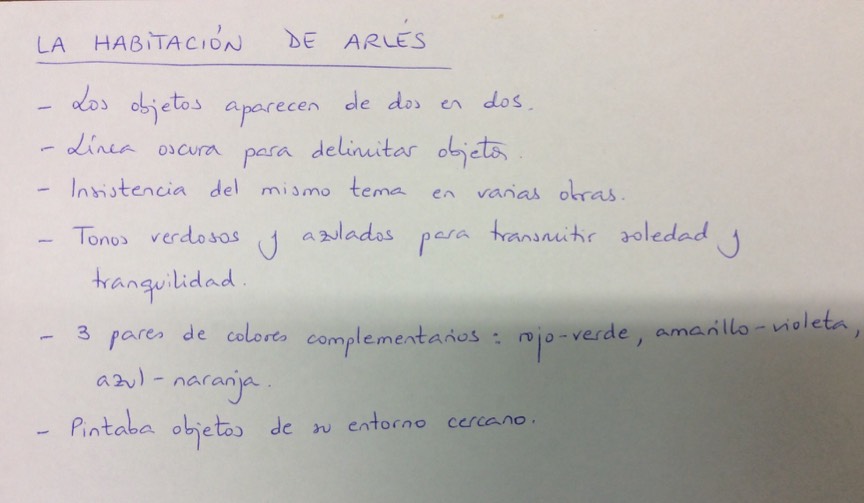 LA HABITACIÓN DE ARLÉS
- Los objetos aparecen de dos en dos.
- Línea oscura para delimitar objetos.
- Insistencia del mismo tema en varias obras.
- Tonos verdosos y azulados para transmitir soledad y
tranquilidad.
- 3 pares de colores complementarios : rojo-verde, amarillo-violeta,
azul-naranja.
- Pintaba objetos de su entorno cercano.